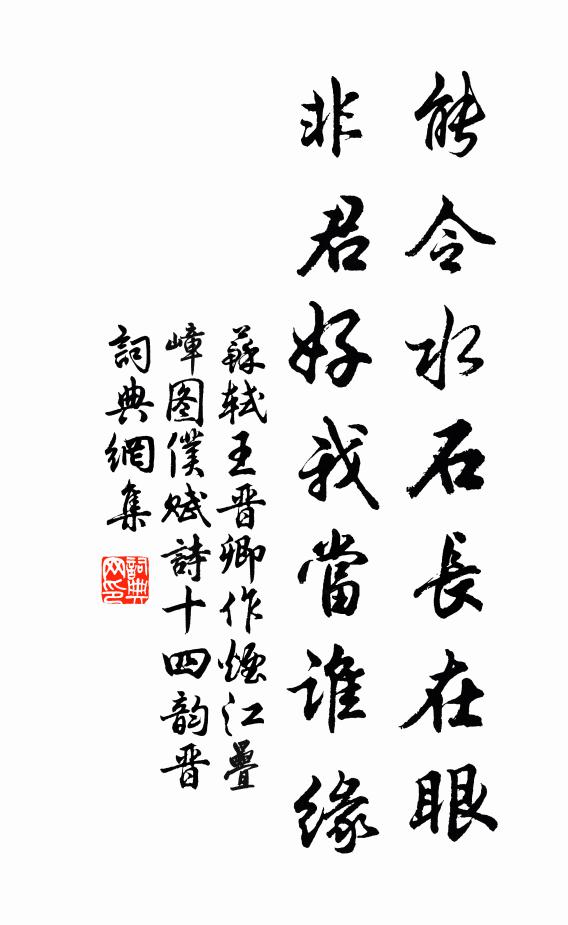 能令水石長在眼
非君好我當誰緣
蘇軾王晋卿作煙江疊
嶂图僕赋詩十四韵晋
詞典網集
詞典网印